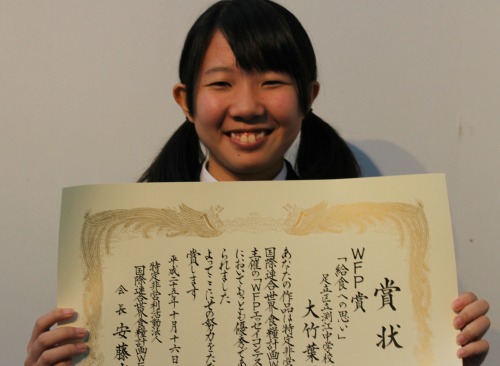 賞状
WFP賞
「給食への思い」
足立区立渕江中学校
大竹葉
あなたの作品は特定非営
国際連合世界食糧計画W
主催の「WFPエッセイコンテス
においてもっとも優秀であ
られました
よってここにその努力をたた
賞します
平成二十五年十月十六日
特定非営利活動法人
国際連合世界食糧計画W
会長 安藤